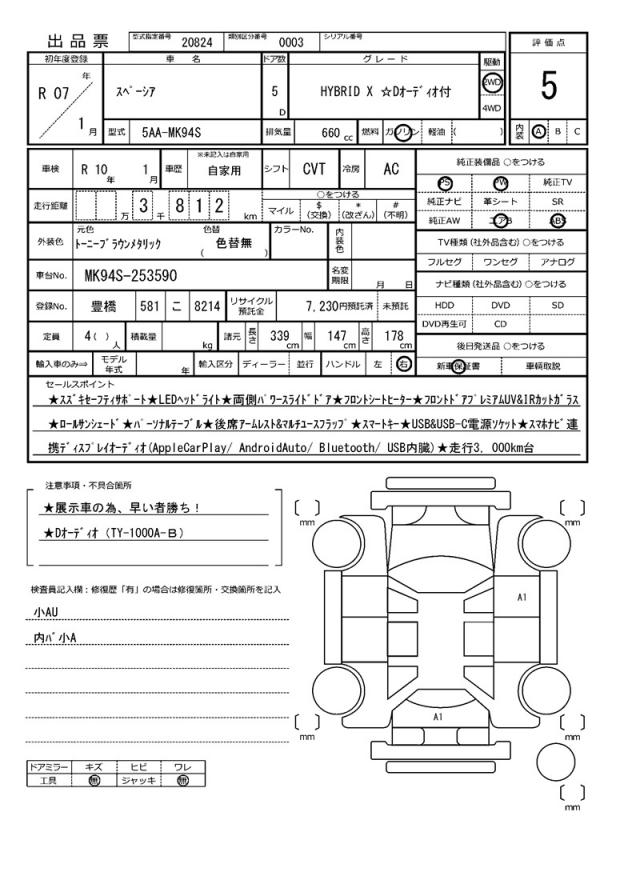 出品票 型式指定番号 20824 類別区分番号 0003 シリアル番号
初年度登録 車名 ドア数 グレード 駆動 評価点
R 07 年 1 月 スペーシア 5 D HYBRID X ☆Dオーディオ付 2WD 4WD 5
型式 5AA-MK94S 排気量 660 cc 燃料 ガソリン 軽油 ( ) 内装 A B C
車検 R 10 年 1 月 車歴 ※未記入は自家用 自家用 シフト CVT 冷房 AC 純正装備品 ○をつける
PS PW 純正TV
走行距離 万 3 千 8 1 2 km ○をつける 純正ナビ 革シート SR
マイル $ (交換) * (改ざん) # (不明) 純正AW エアB ABS
外装色 元色 トーニーブラウンメタリック 色替 ( 色替無 ) カラーNo. 内装色 TV種類 (社外品含む) ○をつける
フルセグ ワンセグ アナログ
車台No. MK94S-253590 名変期限 月 日 ナビ種類 (社外品含む) ○をつける
登録No. 豊橋 581 こ 8214 リサイクル預託金 7,230円預託済 未預託 HDD DVD SD
DVD再生可 CD
定員 4( ) 人 積載量 kg 諸元 長さ 339 cm 幅 147 cm 高さ 178 cm 後日発送品 ○をつける
輸入車のみ⇒ モデル年式 年 輸入区分 ディーラー 並行 ハンドル 左 右 新車保証書 車輌取説
セールスポイント
★スズキセーフティサポート★LEDヘッドライト★両側パワースライドドア★フロントシートヒーター★フロントドアプレミアムUV&IRカットガラス
★ロールサンシェード★パーソナルテーブル★後席アームレスト&マルチユースフラップ★スマートキー★USB&USB-C電源ソケット★スマホナビ連
携ディスプレイオーディオ(AppleCarPlay/ AndroidAuto/ Bluetooth/ USB内臓)★走行3,000km台
注意事項・不具合箇所
★展示車の為、早い者勝ち！
★Dオーディオ (TY-1000A-B)
検査員記入欄：修復歴「有」の場合は修復箇所・交換箇所を記入
小AU
内バ小A
ドアミラー キズ ヒビ ワレ
工具 無 ジャッキ 無
[ ] mm
[ ] mm
A1
A1
[ ] mm
[ ] mm
[ ] mm